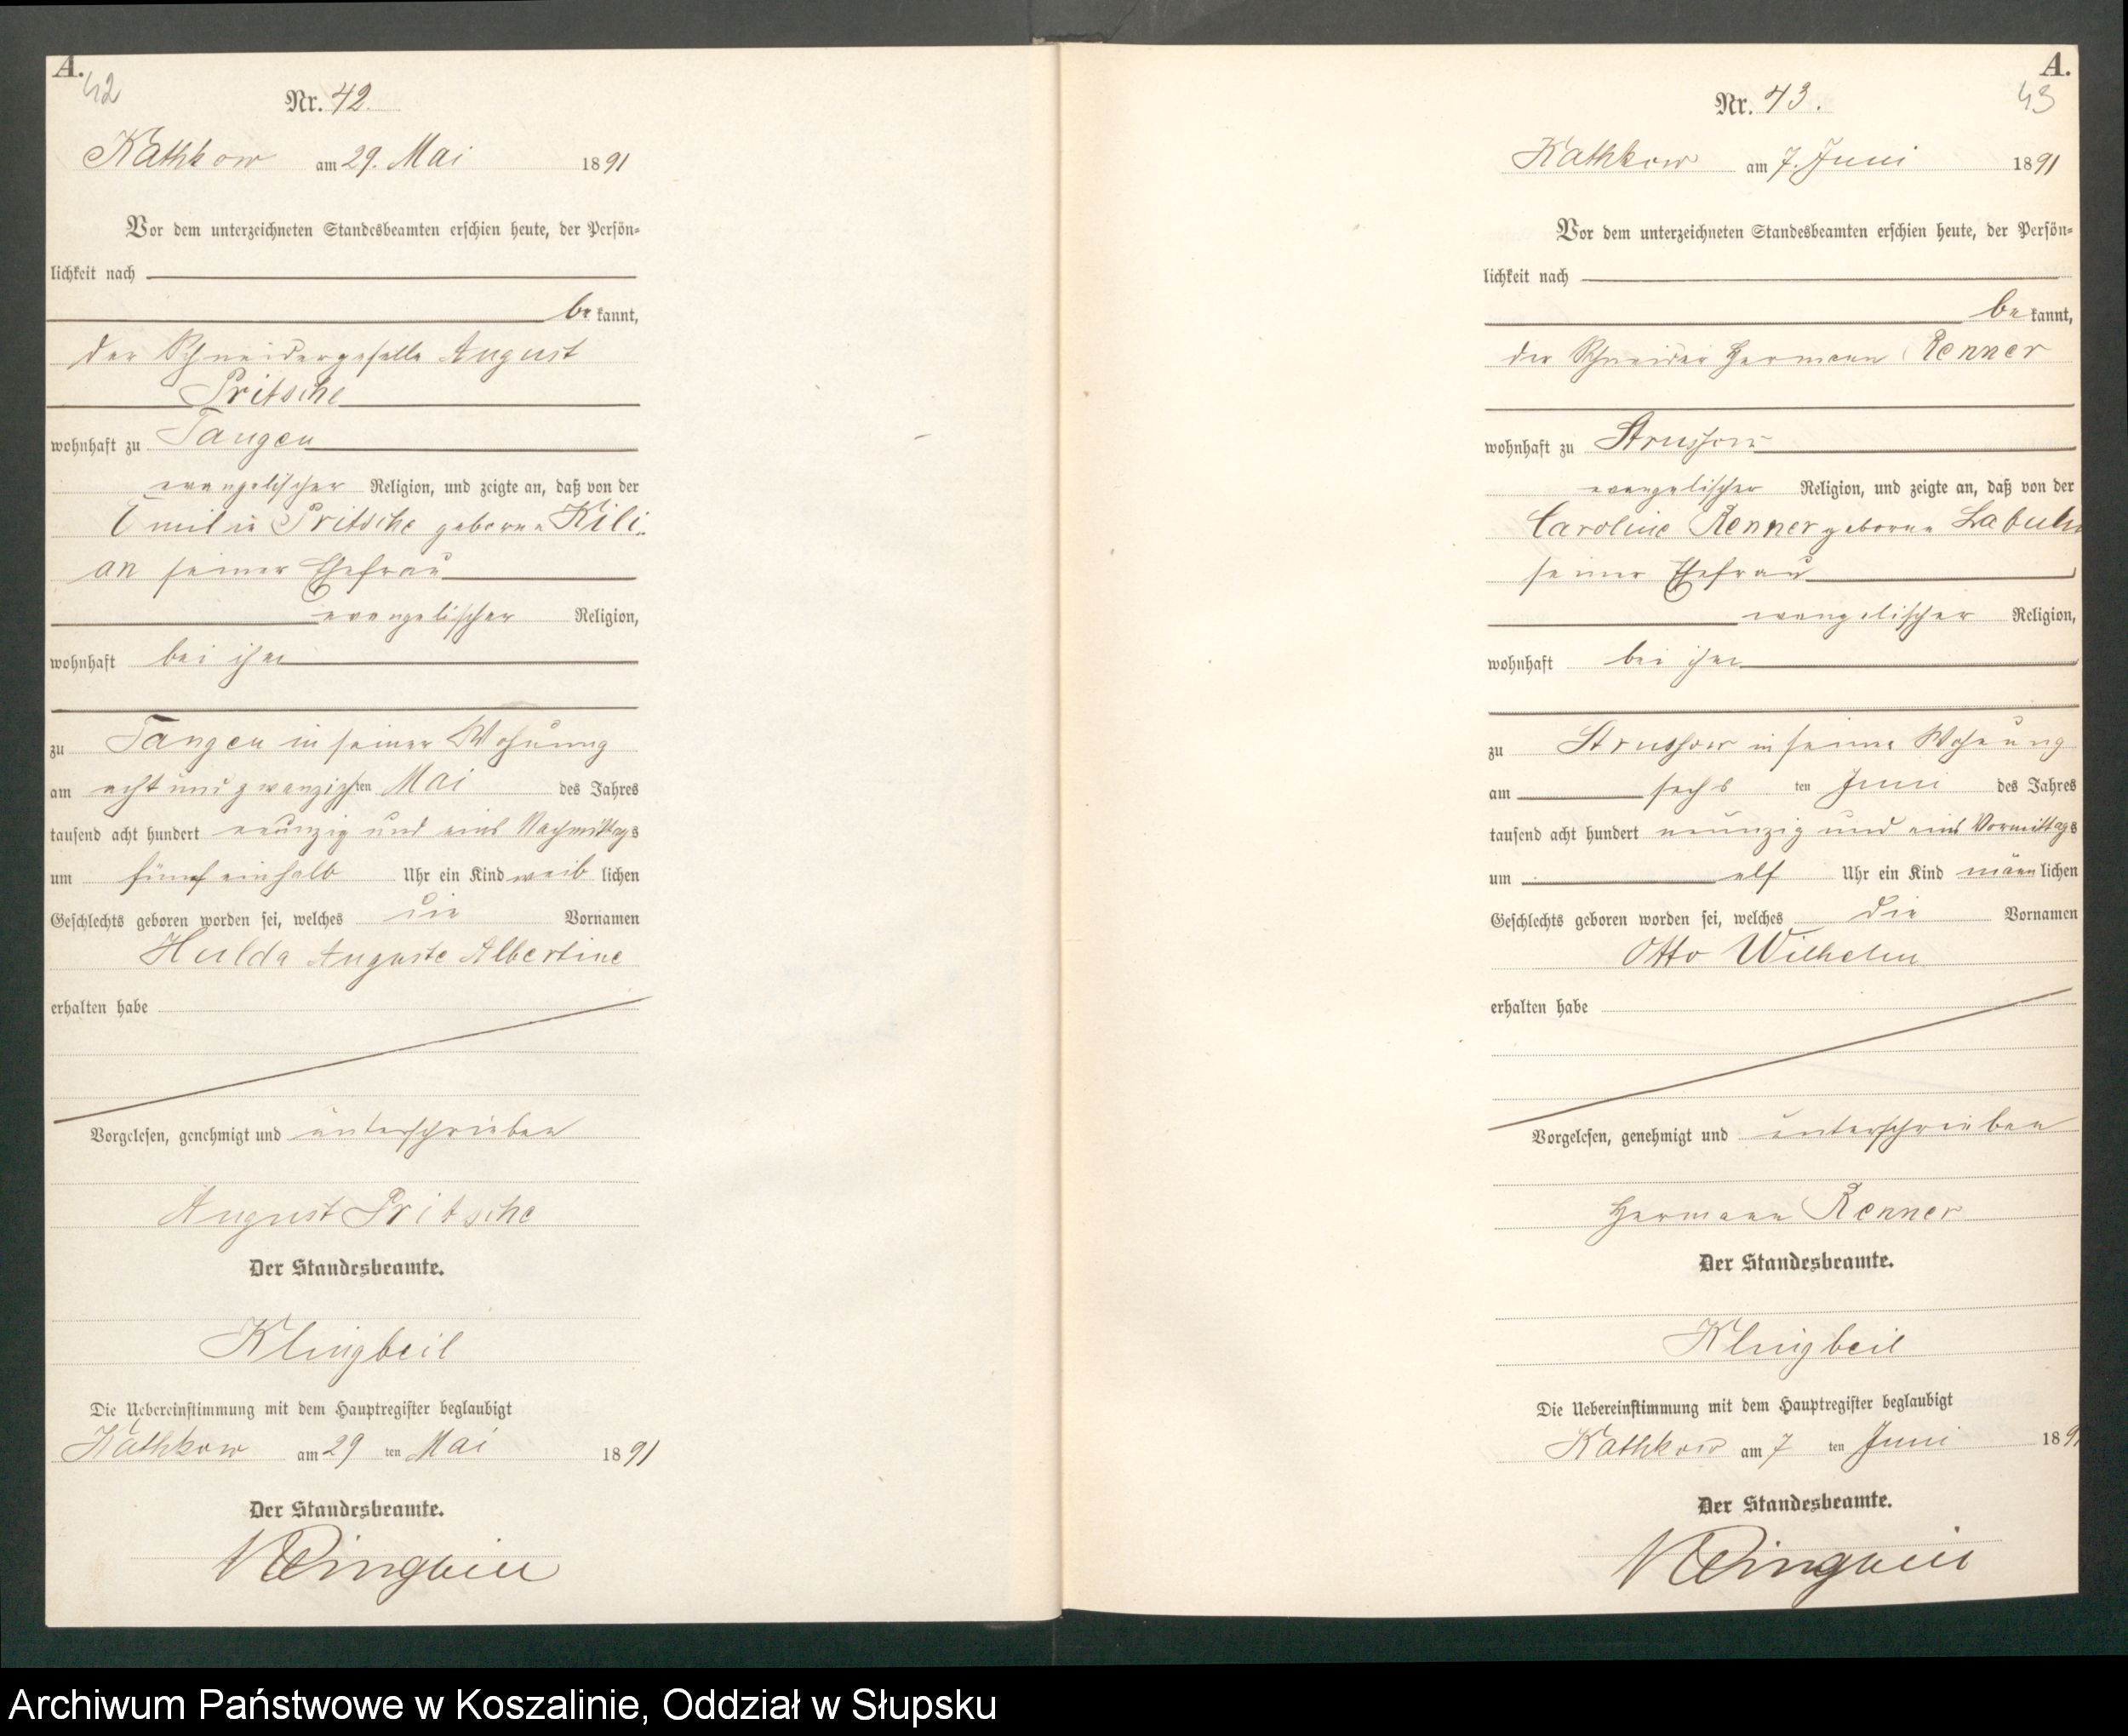 A.
42
Nr. 42.
Kathkow am 29. Mai 1891
Vor dem unterzeichneten Standesbeamten erschien heute, der Persön-
lichkeit nach
be kannt,
der Schneidergeselle August
Pritsche
wohnhaft zu Tangen
evangelischer Religion, und zeigte an, daß von der
Emilie Pritsche geborne Kili-
an seiner Ehefrau
evangelischer Religion,
wohnhaft bei ihm
zu Tangen in seiner Wohnung
am acht und zwanzigsten Mai des Jahres
tausend acht hundert neunzig und eins Nachmittags
um fünf einhalb Uhr ein Kind weib lichen
Geschlechts geboren worden sei, welches die Vornamen
Hulda Auguste Albertine
erhalten habe
Vorgelesen, genehmigt und unterschrieben
August Pritsche
Der Standesbeamte.
Klingbeil
Die Uebereinstimmung mit dem Hauptregister beglaubigt
Kathkow am 29 ten Mai 1891
Der Standesbeamte.
Klingbeil
A.
43
Nr. 43.
Kathkow am 7. Juni 1891
Vor dem unterzeichneten Standesbeamten erschien heute, der Persön-
lichkeit nach
be kannt,
der Schneider Hermann Renner
wohnhaft zu Strussow
evangelischer Religion, und zeigte an, daß von der
Caroline Renner geborne Labuhn
seiner Ehefrau
evangelischer Religion,
wohnhaft bei ihm
zu Strussow in seiner Wohnung
am sechs ten Juni des Jahres
tausend acht hundert neunzig und eins Vormittags
um elf Uhr ein Kind männ lichen
Geschlechts geboren worden sei, welches die Vornamen
Otto Wilhelm
erhalten habe
Vorgelesen, genehmigt und unterschrieben
Hermann Renner
Der Standesbeamte.
Klingbeil
Die Uebereinstimmung mit dem Hauptregister beglaubigt
Kathkow am 7 ten Juni 1891
Der Standesbeamte.
Klingbeil
Archiwum Państwowe w Koszalinie, Oddział w Słupsku